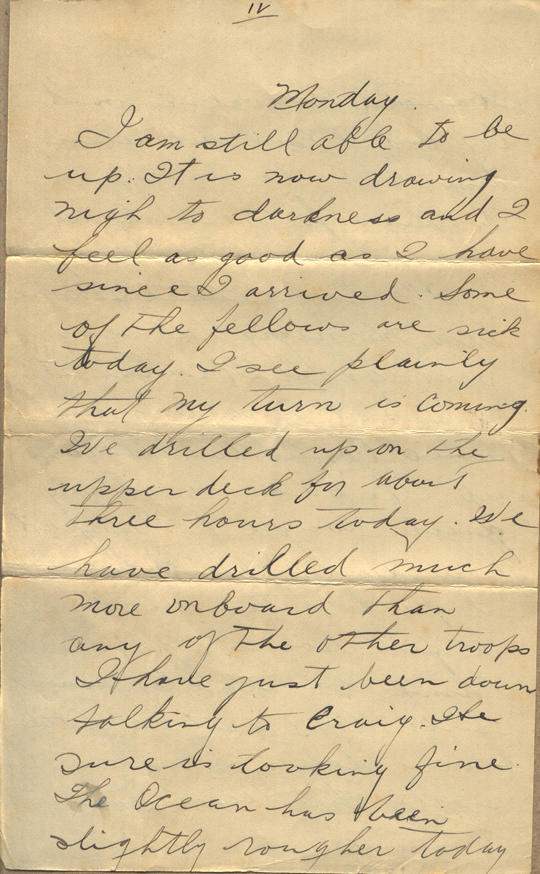 IV
Monday.
I am still able to be
up. It is now drawing
nigh to darkness and I
feel as good as I have
since I arrived. Some
of the fellows are sick
today. I see plainly
that my turn is coming.
We drilled up on the
upper deck for about
three hours today. We
have drilled much
more onboard than
any of the other troops
I have just been down
talking to Craig. He
sure is looking fine.
The Ocean has been
slightly rougher today